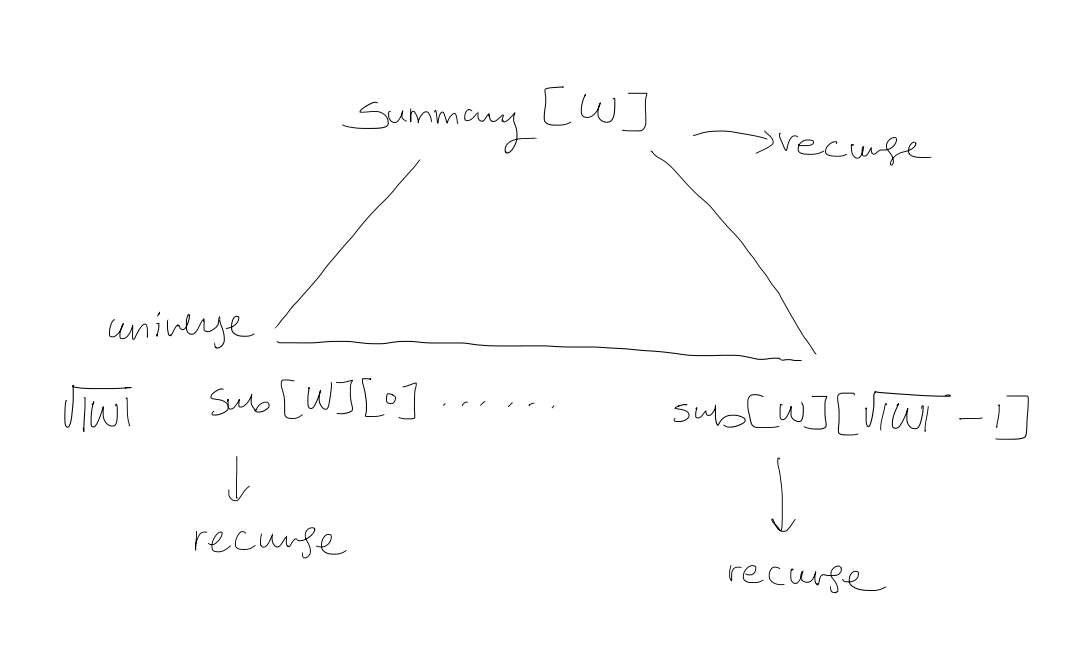 summary [W]
→ recurse
universe
√|W| sub[W][0] ...... sub[W][√|W| - 1]
↓ ↓
recurse
recurse